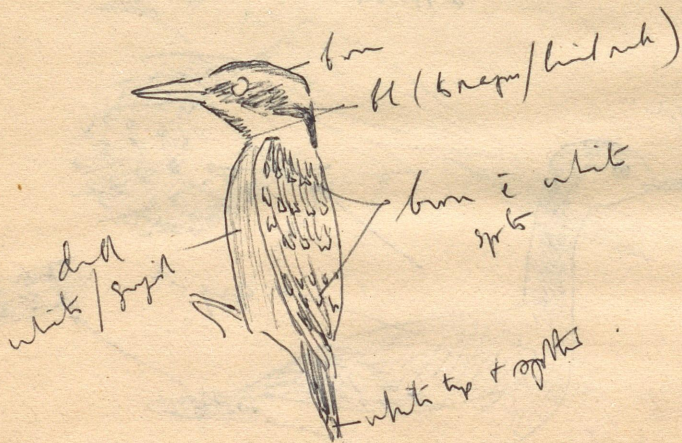 brown
bl (to nape / hind neck)
brown c̄ white
spots
dull
white / greyish
white tip + spotted.